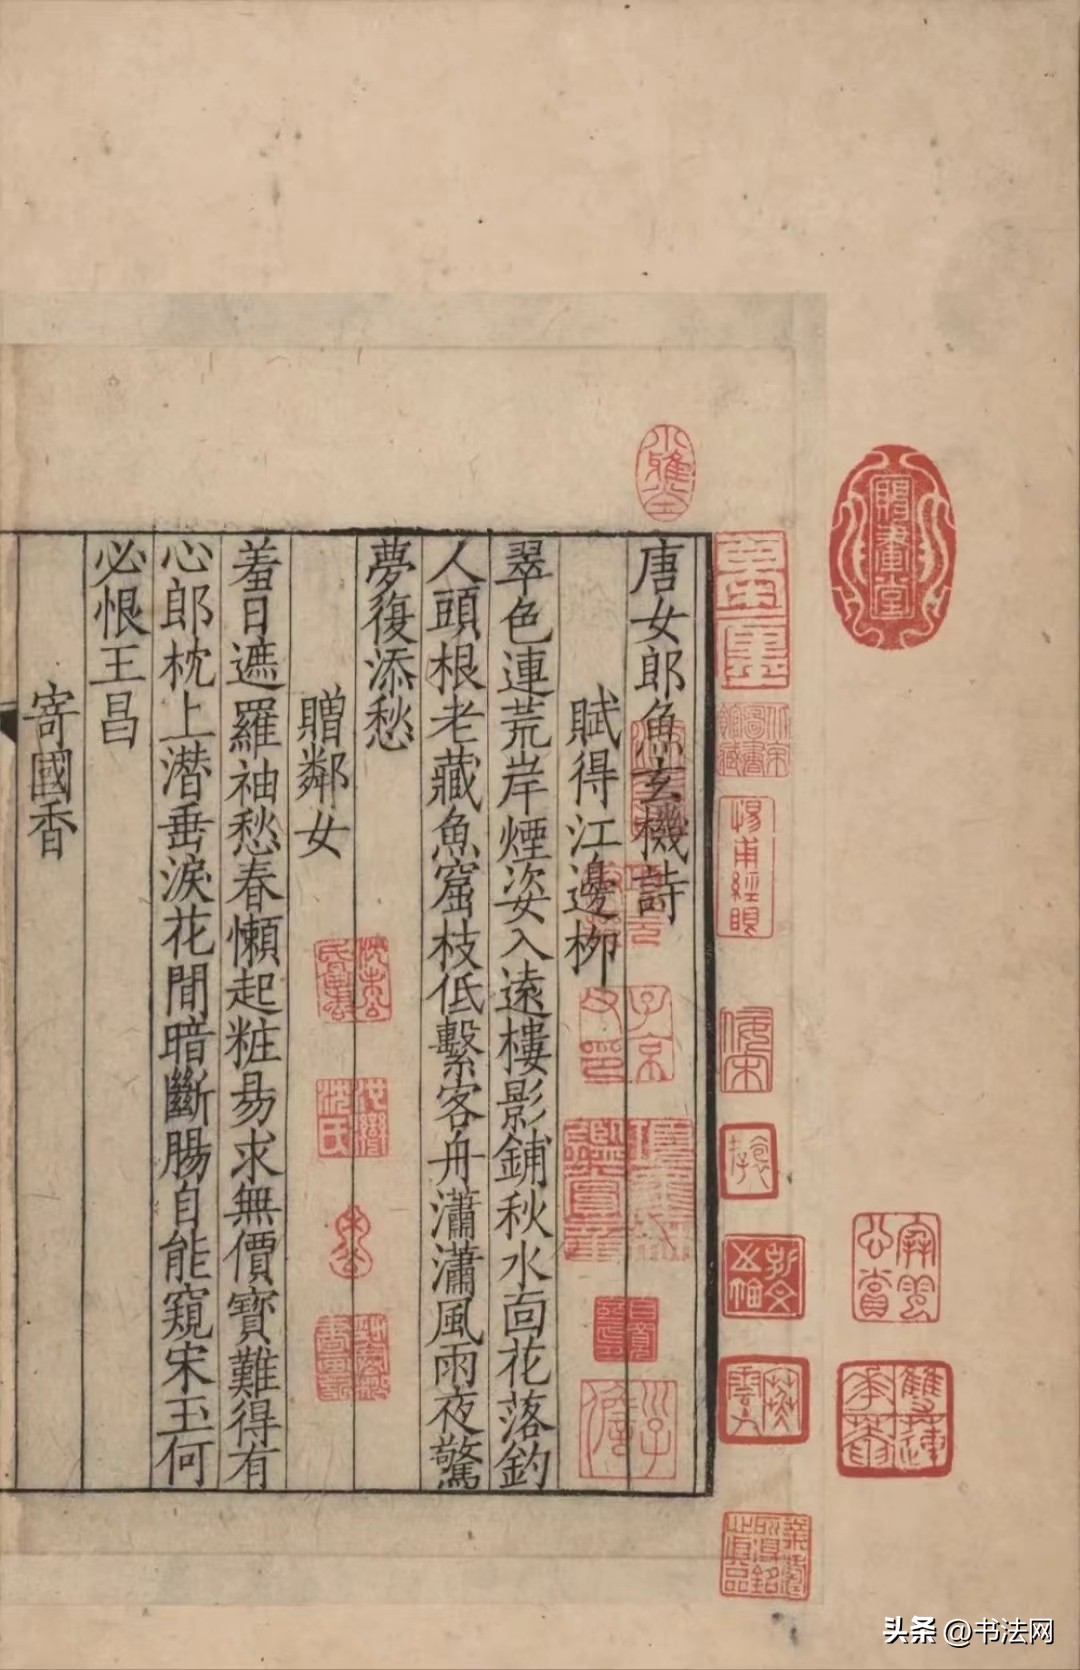 唐女郎魚玄機詩
賦得江邊柳
翠色連荒岸煙姿入遠樓影鋪秋水面花落釣
人頭根老藏魚窟枝低繫客舟瀟瀟風雨夜驚
夢復添愁
贈鄰女
羞日遮羅袖愁春懶起粧易求無價寶難得有
心郎枕上潜垂淚花間暗斷腸自能窺宋玉何
必恨王昌
寄國香
惕甫經眼
子京
沈氏
头条 @书法网